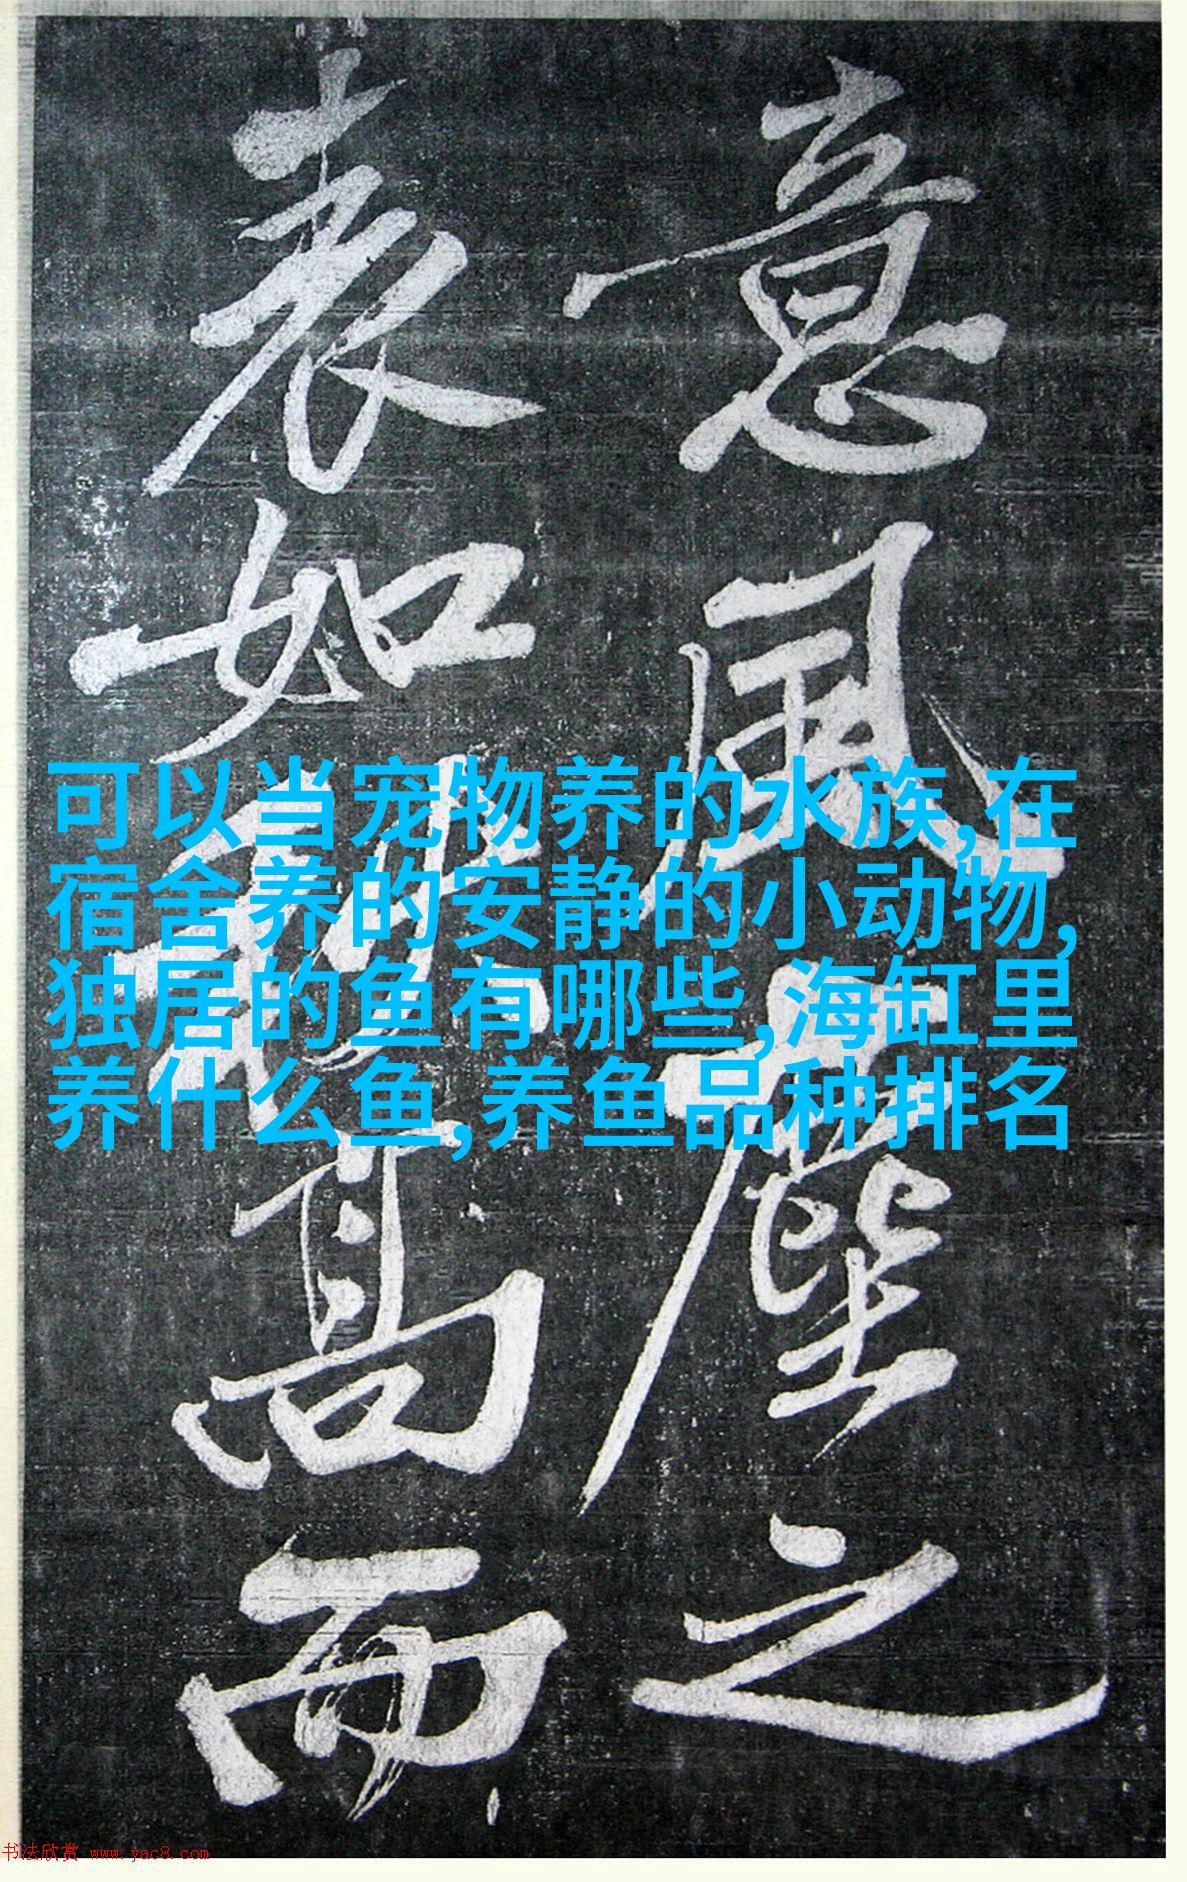 意風塵之
表如高而
可以当宠物养的水族,在
宿舍养的安静的小动物,
独居的鱼有哪些,海缸里
养什么鱼,养鱼品种排名
书法欣赏 www.yac8.com